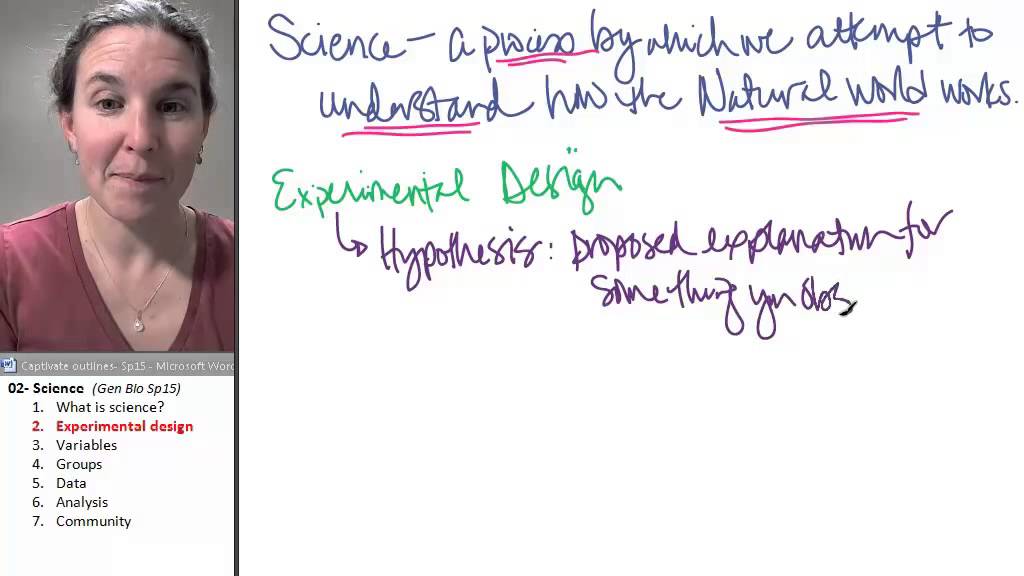 Science – a process by which we attempt to
understand how the Natural World works.
Experimental Design
Hypothesis: proposed explanation for
something you obs
Captivate outlines- Sp15 - Microsoft Word
02- Science (Gen BIo Sp15)
1. What is science?
2. Experimental design
3. Variables
4. Groups
5. Data
6. Analysis
7. Community